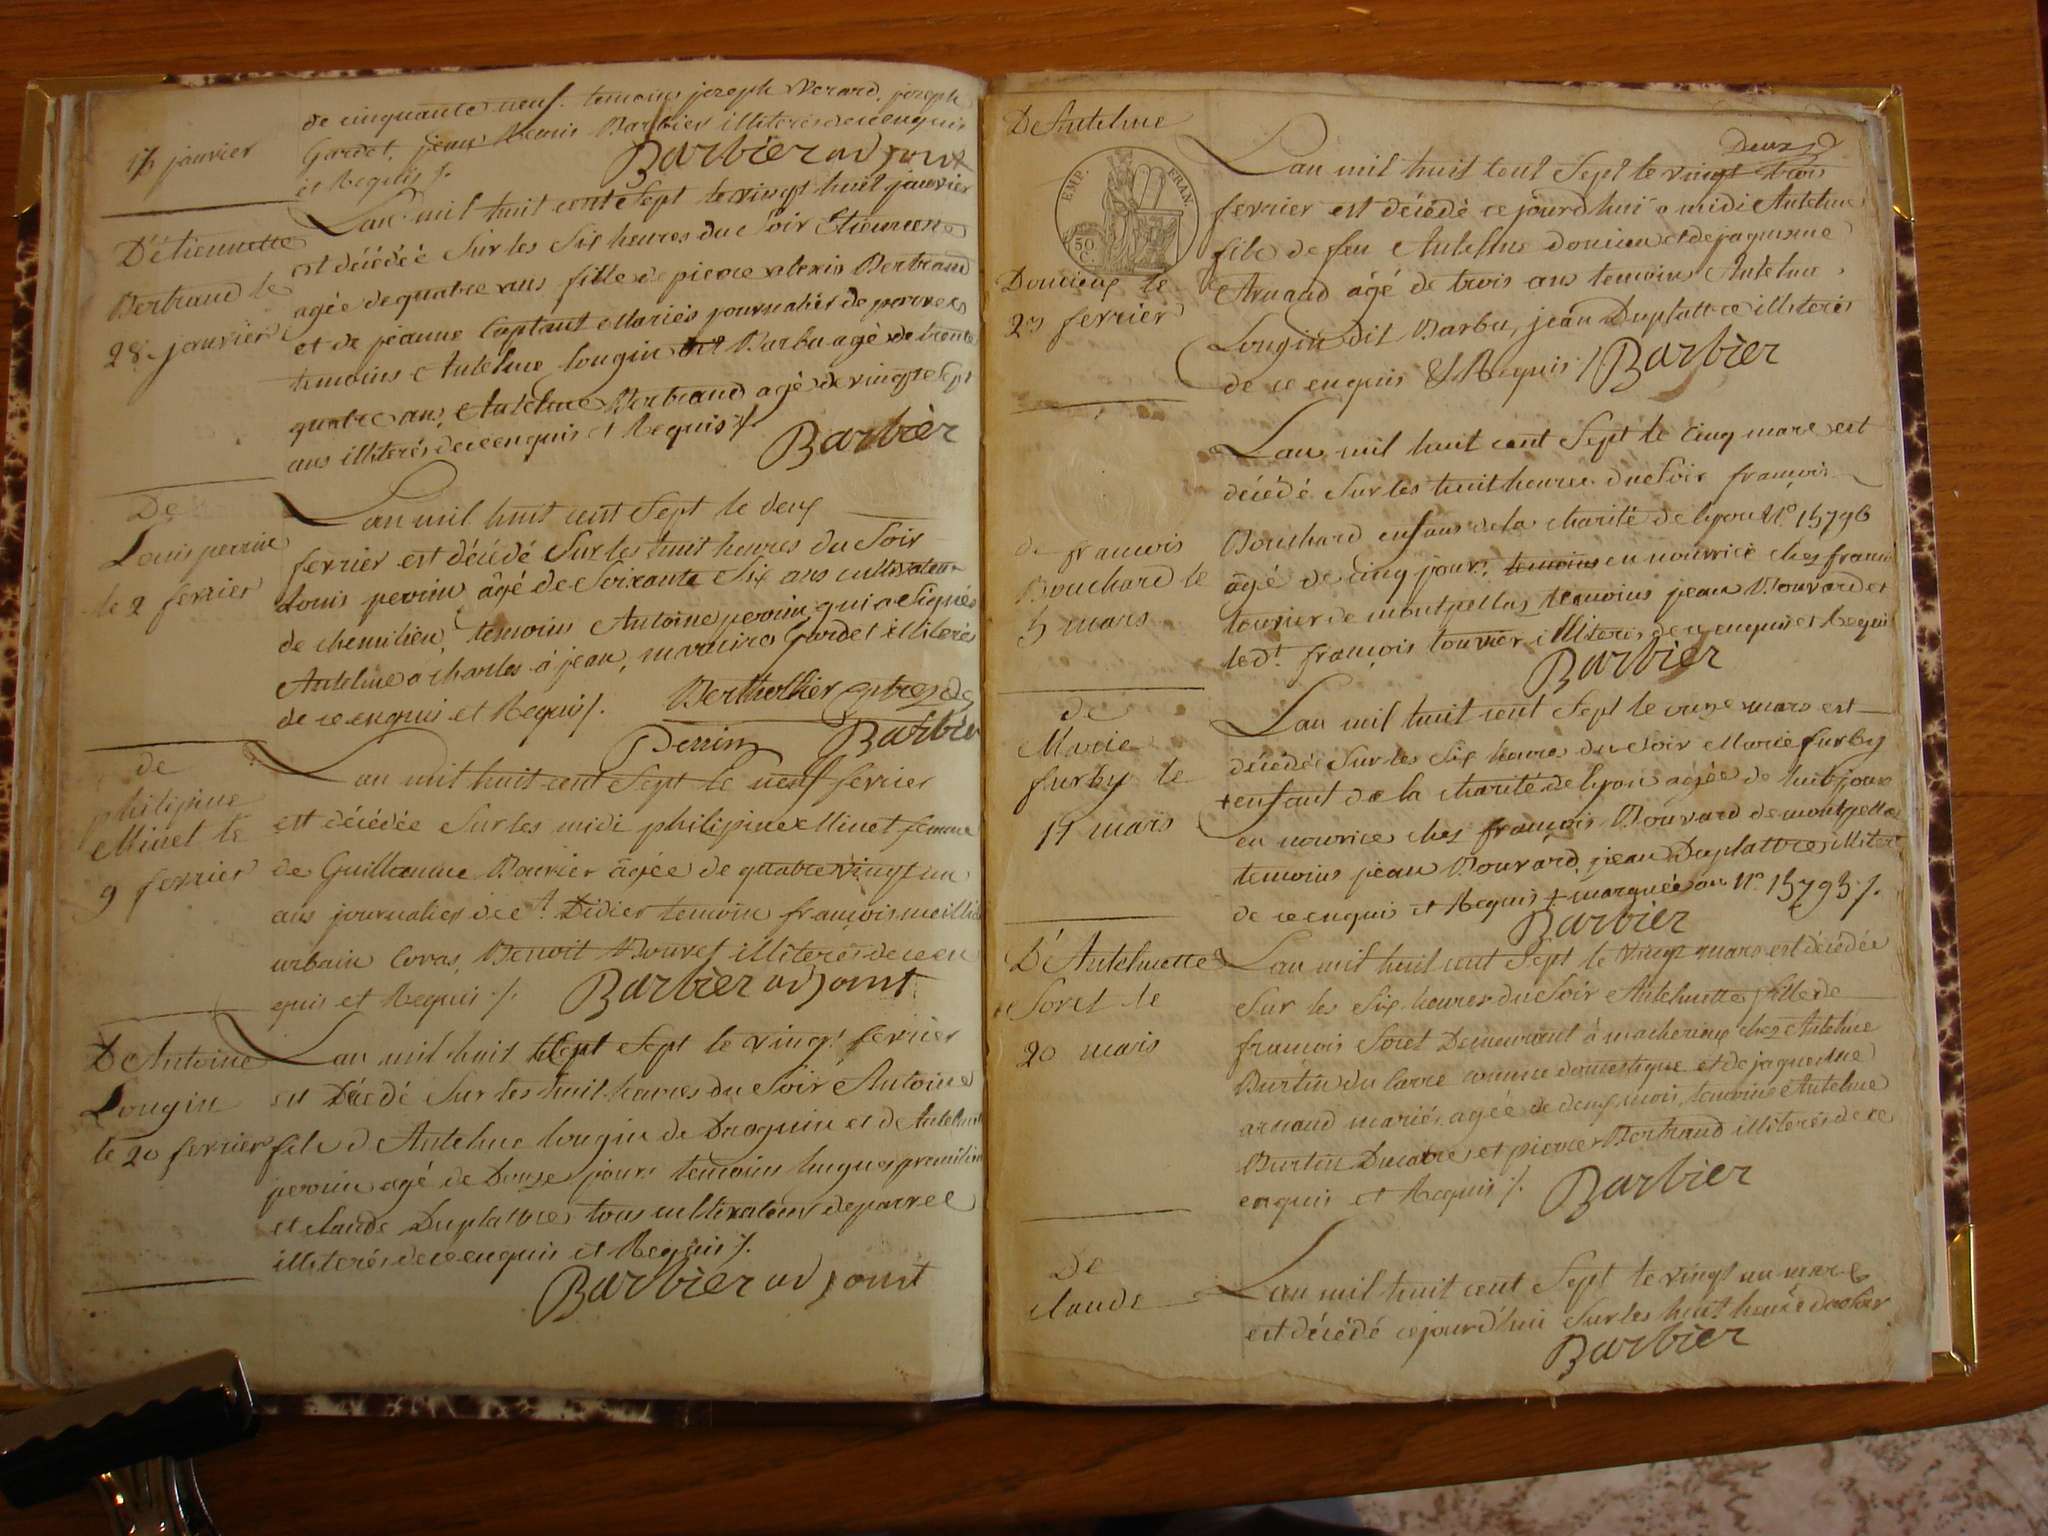 de cinquante neuf. temoins joseph Verard, joseph
17 janvier
Gardet, jean Barbier illiterés de ce enquis
et Requis ⁒
Barbier adjoint
D'étiennette
Bertrand le
28. janvier
Lan mil huit cent Sept le vingt huit janvier
est décédée Sur les Six heures du Soir Etiennette
agée de quatre ans fille de pierre alexis Bertrand
et de jeanne Mariés journalier de
temoins Antelme Longin dit Barbu agé de trente
quatre ans, Antelme Bertrand agé de vingt Sept
ans illiterés de ce enquis et Requis ⁒
Barbier
De
Louis perrin
le 2 fevrier
Lan mil huit cent Sept le deux
fevrier est décédé Sur les huit heures du Soir
Louis perrin âgé de Soixante Six ans cultivateur
de chemilieu, temoins Antoine perrin qui a Signé
Antelme à charles à jean, Gardet illiterés
de ce enquis et Requis ⁒ Berthollier
Perrin Barbier
de
philipine
Minet le
9 fevrier
Lan mil huit cent Sept le neuf fevrier
est décédée Sur les midi philipine Minet femme
de Guillaume Bovier âgée de quatre vingt un
ans journalier de St. Didier temoin françois
urbain Coras, Benoit Bouvet illiterés de ce en
quis et Requis ⁒ Barbier adjoint
De Antoine
Longin
le 20 fevrier
Lan mil huit Sept le vingt fevrier
est Décédé Sur les huit heures du Soir Antoine
fils d Antelme longin de Draguin et de
perrin agé de Douze jours temoins hugues
et claude Duplattre tous cultivateur de
illiterés de ce enquis et Requis ⁒
Barbier adjoint
De Antelme
EMP. FRAN.
50 C.
Doucieux le
23 fevrier
deux
Lan mil huit cent Sept le vingt trois
fevrier est décédé ce jourd'hui a midi Antelme
fils de feu Antelme et de jaquemine
Arnaud âgé de trois ans temoins Antelme
Longin Dit Barbu, jean Duplattre illiterés
de ce enquis & Requis / Barbier
de françois
Bouchard le
5 mars
Lan mil huit cent Sept le Cinq mars est
décédé Sur les huit heures du Soir françois
Bouchard enfans de la charité de lyon N° 15796
âgé de cinq jours, temoins en nourrice chez françois
touvier de montpellas temoins jean Bouvard et
le dt. françois touvier illiterés de ce enquis et Requis
Barbier
de
Marie
furby le
11 mars
Lan mil huit cent Sept le onze mars est
décédée Sur les Six heures du Soir Marie furby
+ enfant de la charité de lyon agée de huit jours
en nourice chez françois Bouvard de montpellas
temoins jean Bouvard, jean Duplattre illiteré
de ce enquis et Requis + marquée au N° 15793 ⁒
Barbier
D'Antelmette
Soret le
20 mars
Lan mil huit cent Sept le vingt mars est décédée
Sur les Six heures du Soir Antelmette fille de
françois Soret Demeurant à chez Antelme
Burtin du comme domestique et de jaquemine
arnaud mariés, agée de deux mois, temoins Antelme
Burtin et pierre Bertrand illiterés de ce
enquis et Requis ⁒ Barbier
De
claude
Lan mil huit cent Sept le vingt un mars
est décédé ce jourd'hui Sur les huit heures du Soir
Barbier